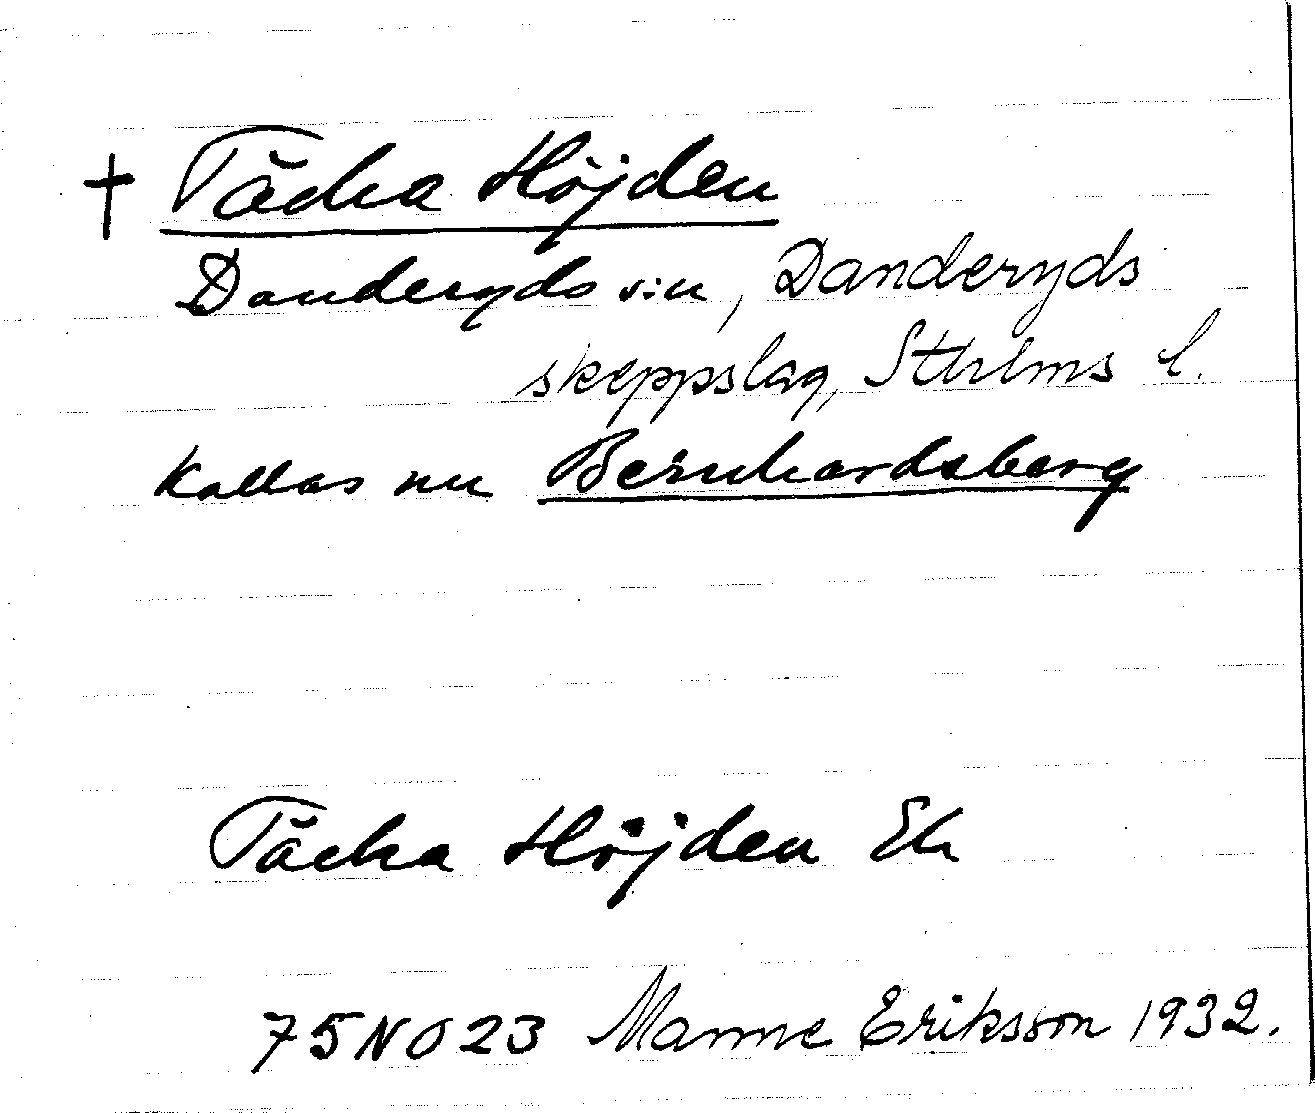 † Täcka Höjden
Danderyds s:n, Danderyds
skeppslag, Sthlms l.
kallas nu Bernhardsberg
Täcka Höjden Ek
75 NO 23 Manne Eriksson 1932.